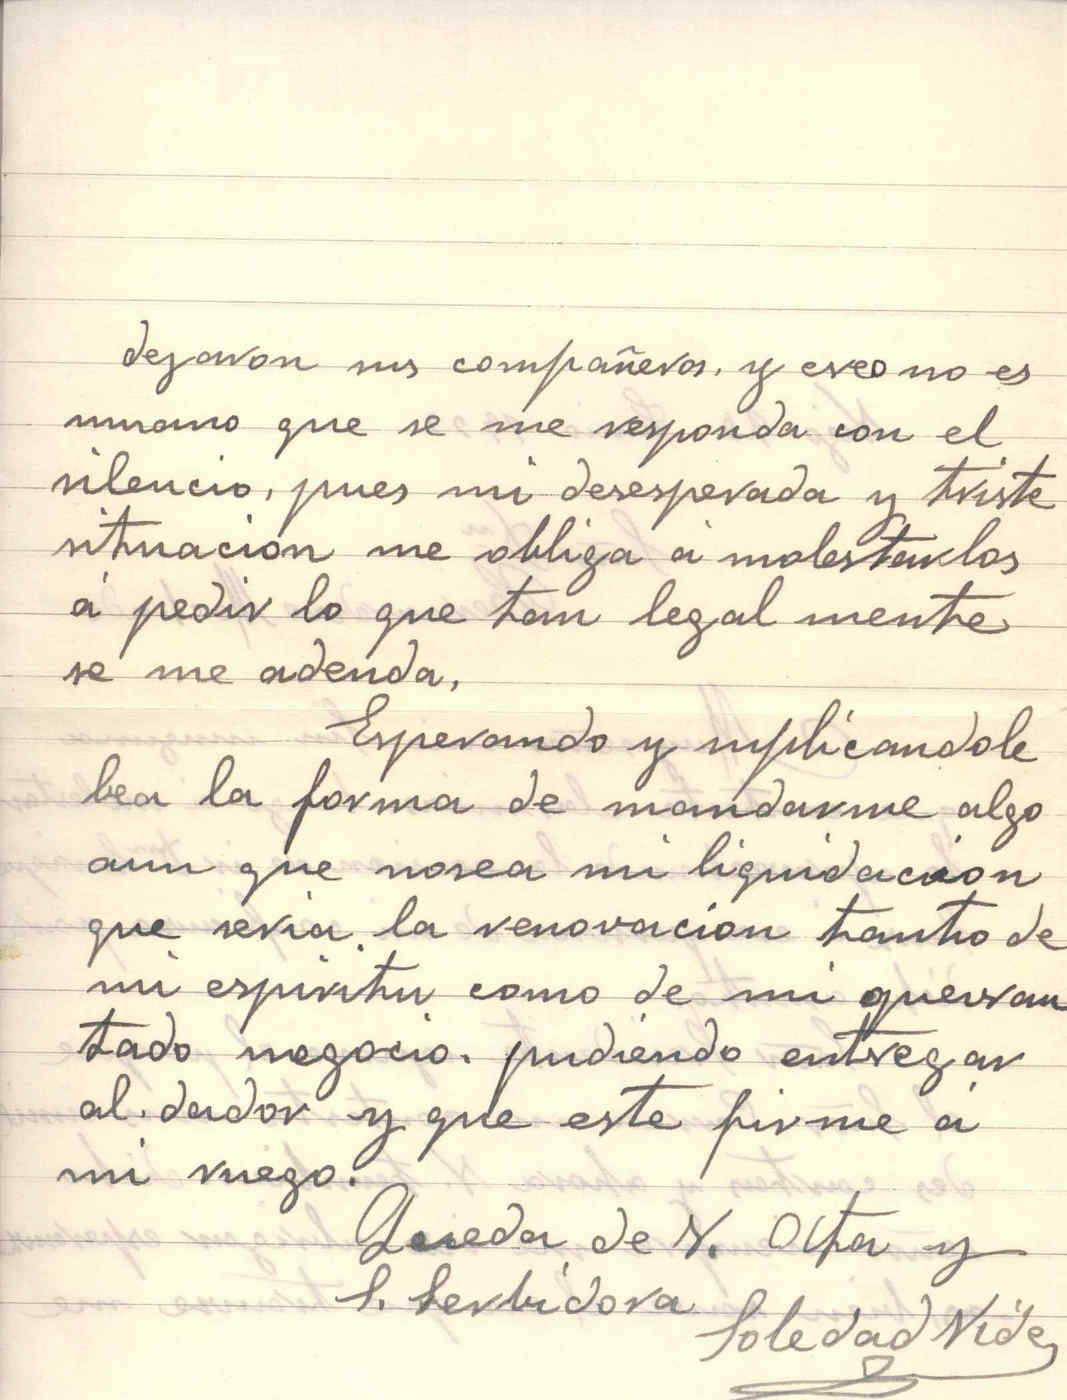 dejaron sus compañeros. y creo no es
umano que se me responda con el
silencio, pues mi desesperada y triste
situacion me obliga á molestarlos
á pedir lo que tan legal mente
se me adeuda.
Esperando y suplicandole
bea la forma de mandarme algo
aun que nosea mi liquidacion
que seria la renovacion tanto de
mi espiritu como de mi quevran
tado negocio. pudiendo entregar
al. dador y que este firme á
mi ruego.
Queda de V. Atta y
S. Serbidora
Soledad